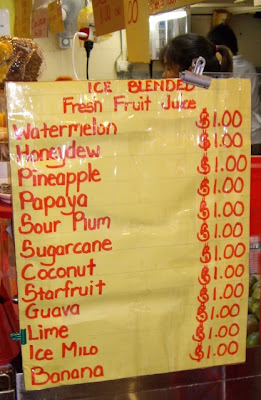 ICE
ICE BLENDED
Fresh Fruit Juice
Watermelon $1.00
Honeydew $1.00
Pineapple $1.00
Papaya $1.00
Sour Plum $1.00
Sugarcane $1.00
Coconut $1.00
Starfruit $1.00
Guava $1.00
Lime $1.00
Ice Milo $1.00
Banana $1.00